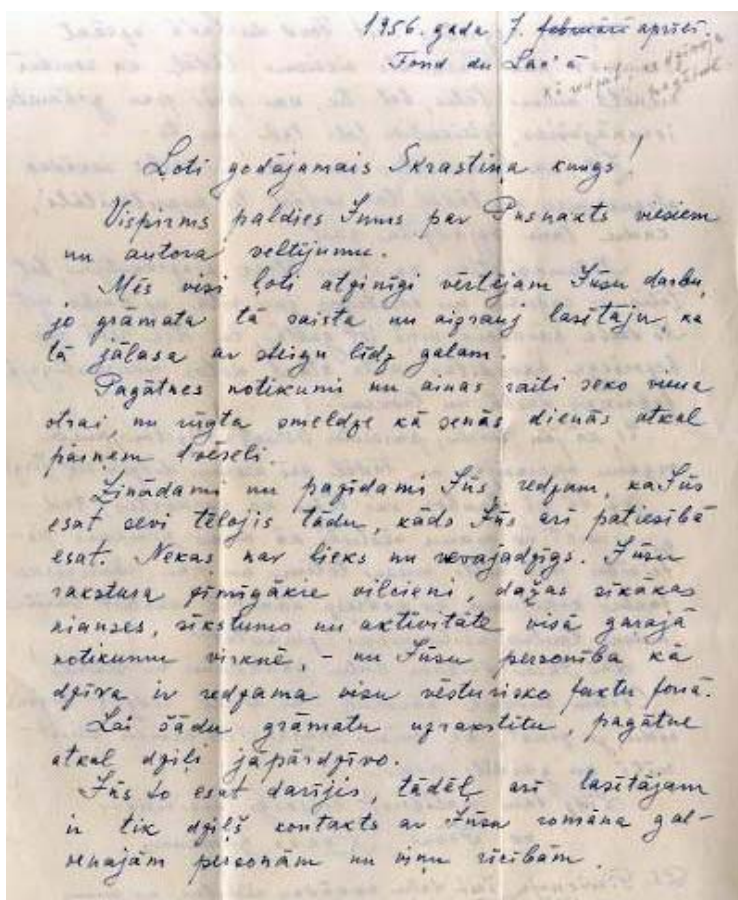 1956. gada 7. februāri aprīlī.
Fond du Lac'ā
kā redzat
Ļoti godājamais Skrastiņa kungs!
Vispirms paldies Jums par Pusnakts viesiem
un autora veltījumu.
Mēs visi ļoti atzinīgi vērtējam Jūsu darbu,
jo grāmata tā saista un aizrauj lasītāju, ka
tā jālasa ar steigu līdz galam.
Pagātnes notikumi un ainas raiti seko viena
otrai un rūgta smeldze kā senās dienās atkal
pārņem dvēseli.
Zinādami un pazīdami Jūs, redzam, ka Jūs
esat sevi tēlojis tādu, kāds Jūs arī patiesībā
esat. Nekas nav lieks un nevajadzīgs. Jūsu
rakstura zīmīgākie vilcieni, dažas sīkākas
nianses, sīkstums un aktīvitāte visā garajā
notikumu virknē, – un Jūsu personība kā
dzīva ir redzama visu vēsturisko faktu fonā.
Lai šādu grāmatu uzrakstītu, pagātne
atkal dziļi jāpārdzīvo.
Jūs to esat darījis, tādēļ arī lasītājam
ir tik dziļš kontakts ar Jūsu romāna gal-
venajām personām un viņu rīcībām.